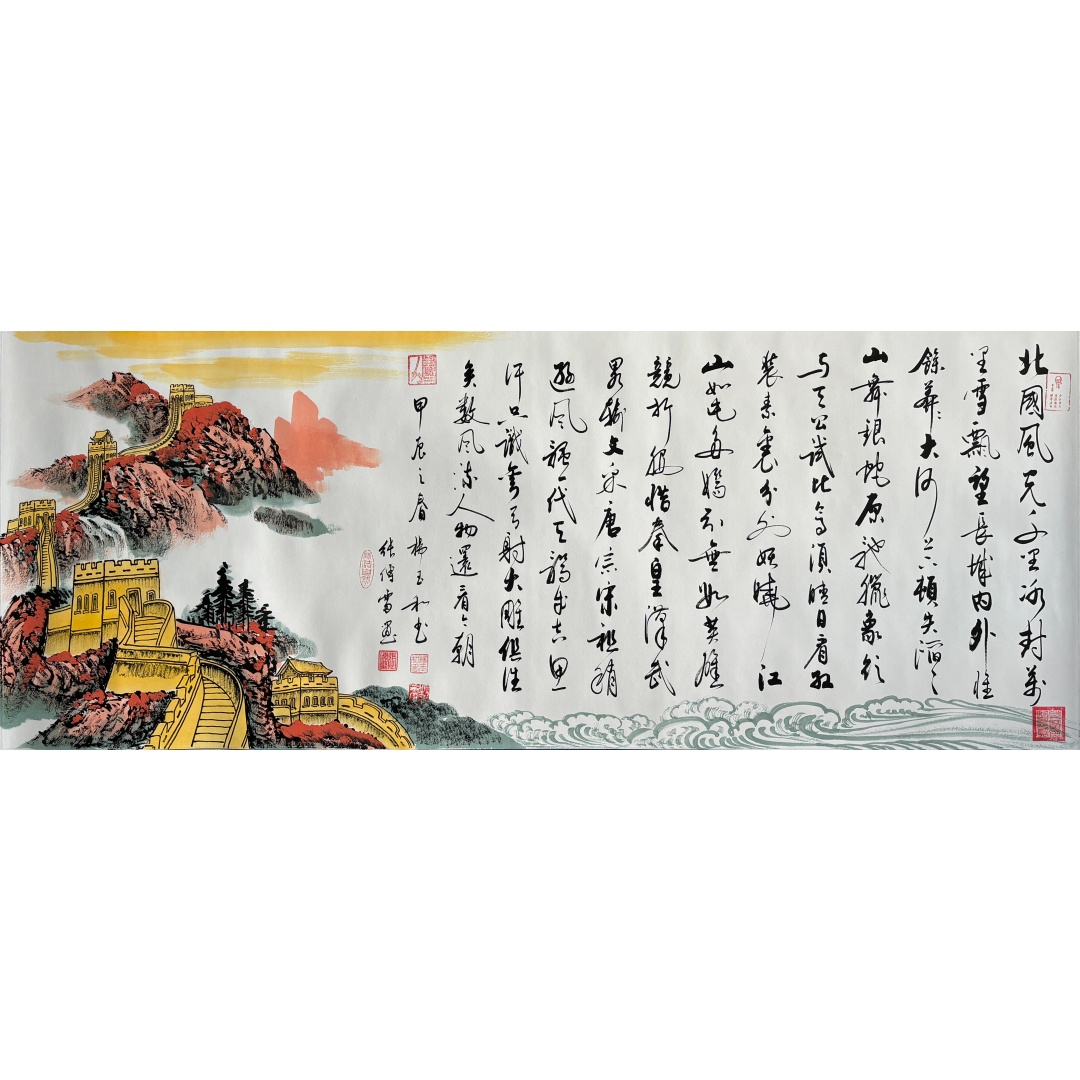 北國風光千里冰封萬
里雪飄望長城内外惟
餘莽〻大河上下頓失滔〻
山舞銀蛇原馳蠟象欲
与天公試比高須晴日看紅
裝素裹分外妖嬈 江
山如此多嬌引無數英雄
競折腰惜秦皇漢武
略輸文采唐宗宋祖稍
遜風騷一代天驕成吉思
汗只識彎弓射大雕俱往
矣數風流人物還看今朝
甲辰之春 楊玉和书
画